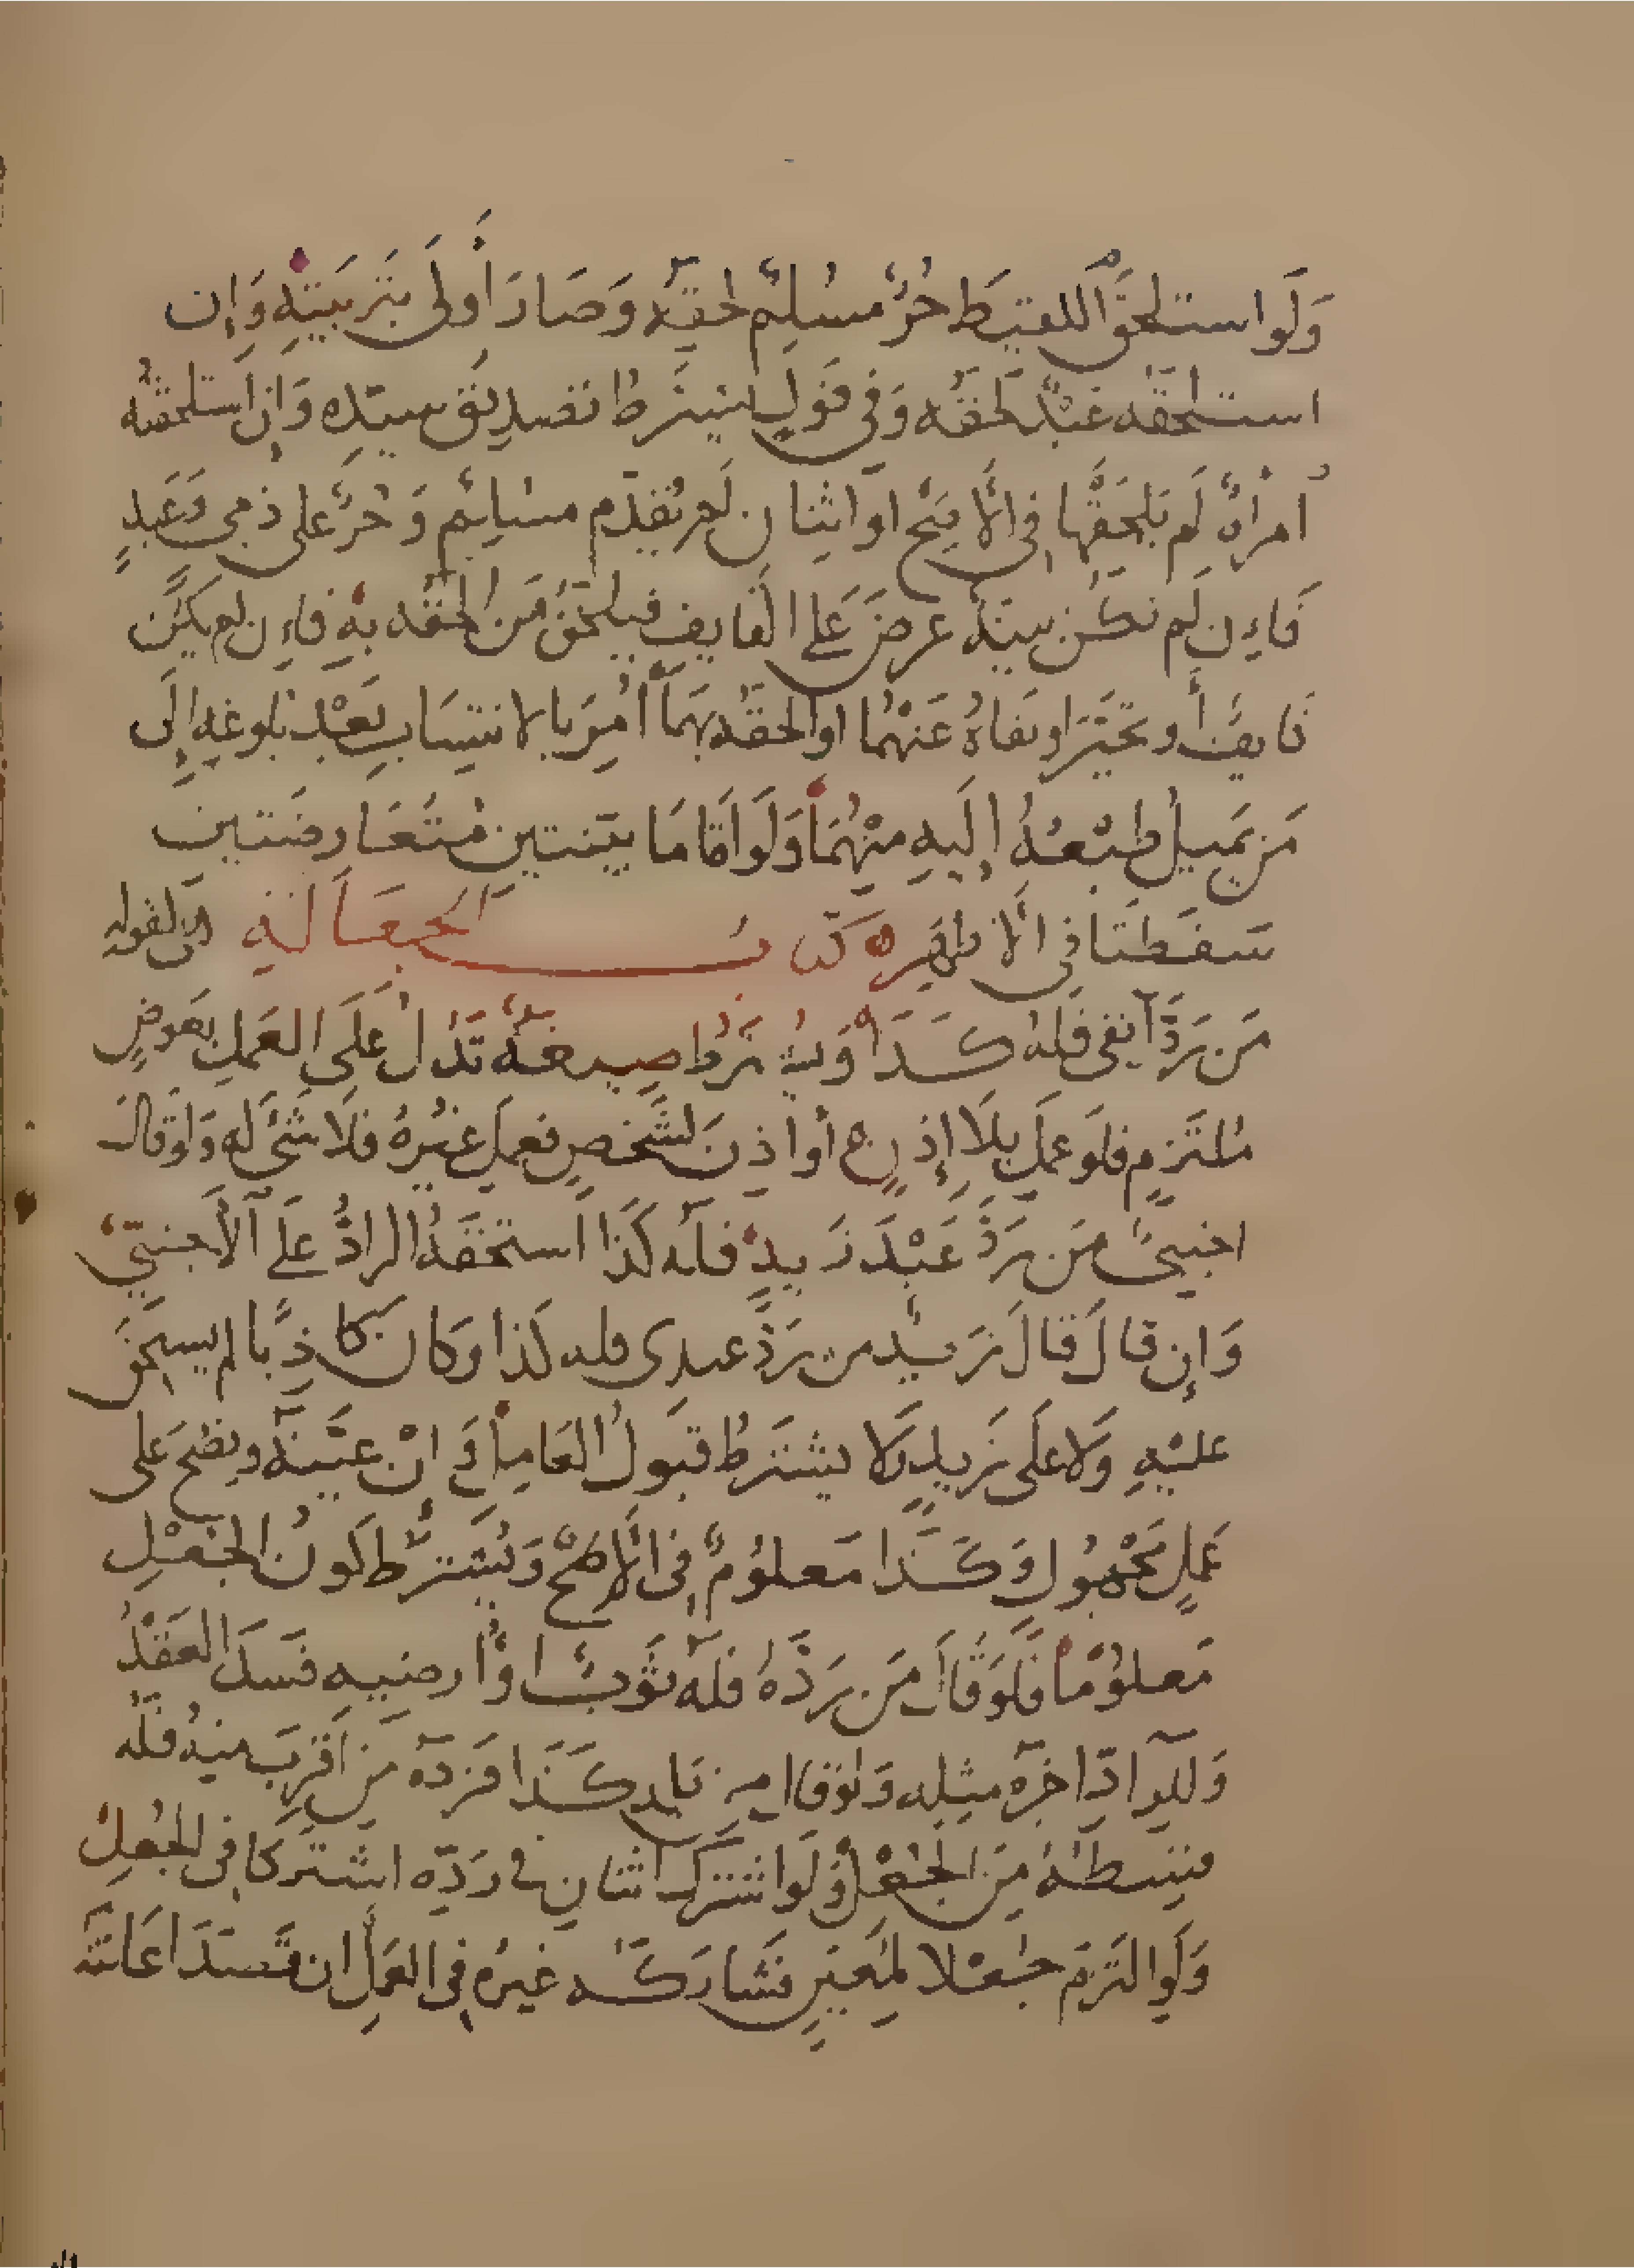 وَلَو استلحَقَ اللقيطَ حُرٌّ مسُلِمٌ لحقَه وَصَارَ أَولَى بتَربيَتِهِ وَإِن
استلحقَه عَبْدٌ لَحقَه وَفي قَولٍ يشترَطُ تصديقُ سيّدِهِ وَإِن استلحقتْه
امرأةٌ لَم يَلحَقْهَا في الأَصَحِّ أو اثنان لَم يُقَدَّم مسْلِمٌ وَحُرٌّ على ذمي وَعَبدٍ
فَإِن لَم تكُن بينَةٌ عُرضَ عَلى القايف فيلحَقُ مَن أَلحقَه بهِ فَإِن لم يكُن
قايفٌ أَو تحيَّرَ او نَفاهُ عَنْهُمَا او أَلحقَه بِهمَا أُمِرَ بالانتِسَابِ بَعْدَ بُلوغِهِ إلَى
مَن يَميلُ طبْعُهُ إليهِ منْهُمَا وَلَو أَقَامَا بيّنتين مُتَعَارضَتين
سَقَطتَا في الأَظهَرِ ه كتابُ الجعَالَةِ هي كقولِهِ
مَن رَدَّ آبقى فَلهُ كَذَا وَيُشْتَرَطُ صيغَةٌ تَدُلُ عَلَى العَملِ بعَوضٍ
مُلتَزمٍ فلَو عَملَ بلَا إِذنٍ أَو اذِنَ لشَخصٍ فعَملَ غيْرُهُ فَلَا شَىءَ لَه وَلوْ قالَ
اجنبيٌ مَن رَدَّ عَبْدَ زَيدٍ فلَه كَذَا استحَقَّهُ الرادُّ عَلَى الأَجنبيِّ
وَإِن قالَ قالَ زَيدٌ من رَدَّ عبدى فله كَذا وكان كَاذِبًا لم يستحق
عليْهِ وَلا علَى زَيدٍ وَلا يشترَطُ قبَولُ العَاملِ وَ انْ عيَّنَهُ ويصَحُّ على
عَملٍ مَجْهُولٍ وَكَذا مَعلُومٌ في الأَصَحِّ وَيُشترطُ كَونُ الجُعْلِ
مَعلُومًا فَلَوْ قَالَ مَن رَدَّهُ فَلَه ثَوبٌ اوْ أُرضيهِ فَسَدَ العَقْدُ
وَللرادِّ اجرَةُ مثِلِهِ وَلوْ قالَ من بلد كَذَا فرَدَّهُ مِن أَقرَبَ منهُ فلَه
قِسْطُهُ مِنَ الجُعْلِ وَلَو اشتركَ اثنانِ في رَدِّه اشتَركَا في الجُعلِ
وَلَو التَزمَ جُعْلا لمُعَينٍ فَشارَكَه غيرُه في العَملِ ان قَصَدَ اعَانتَه